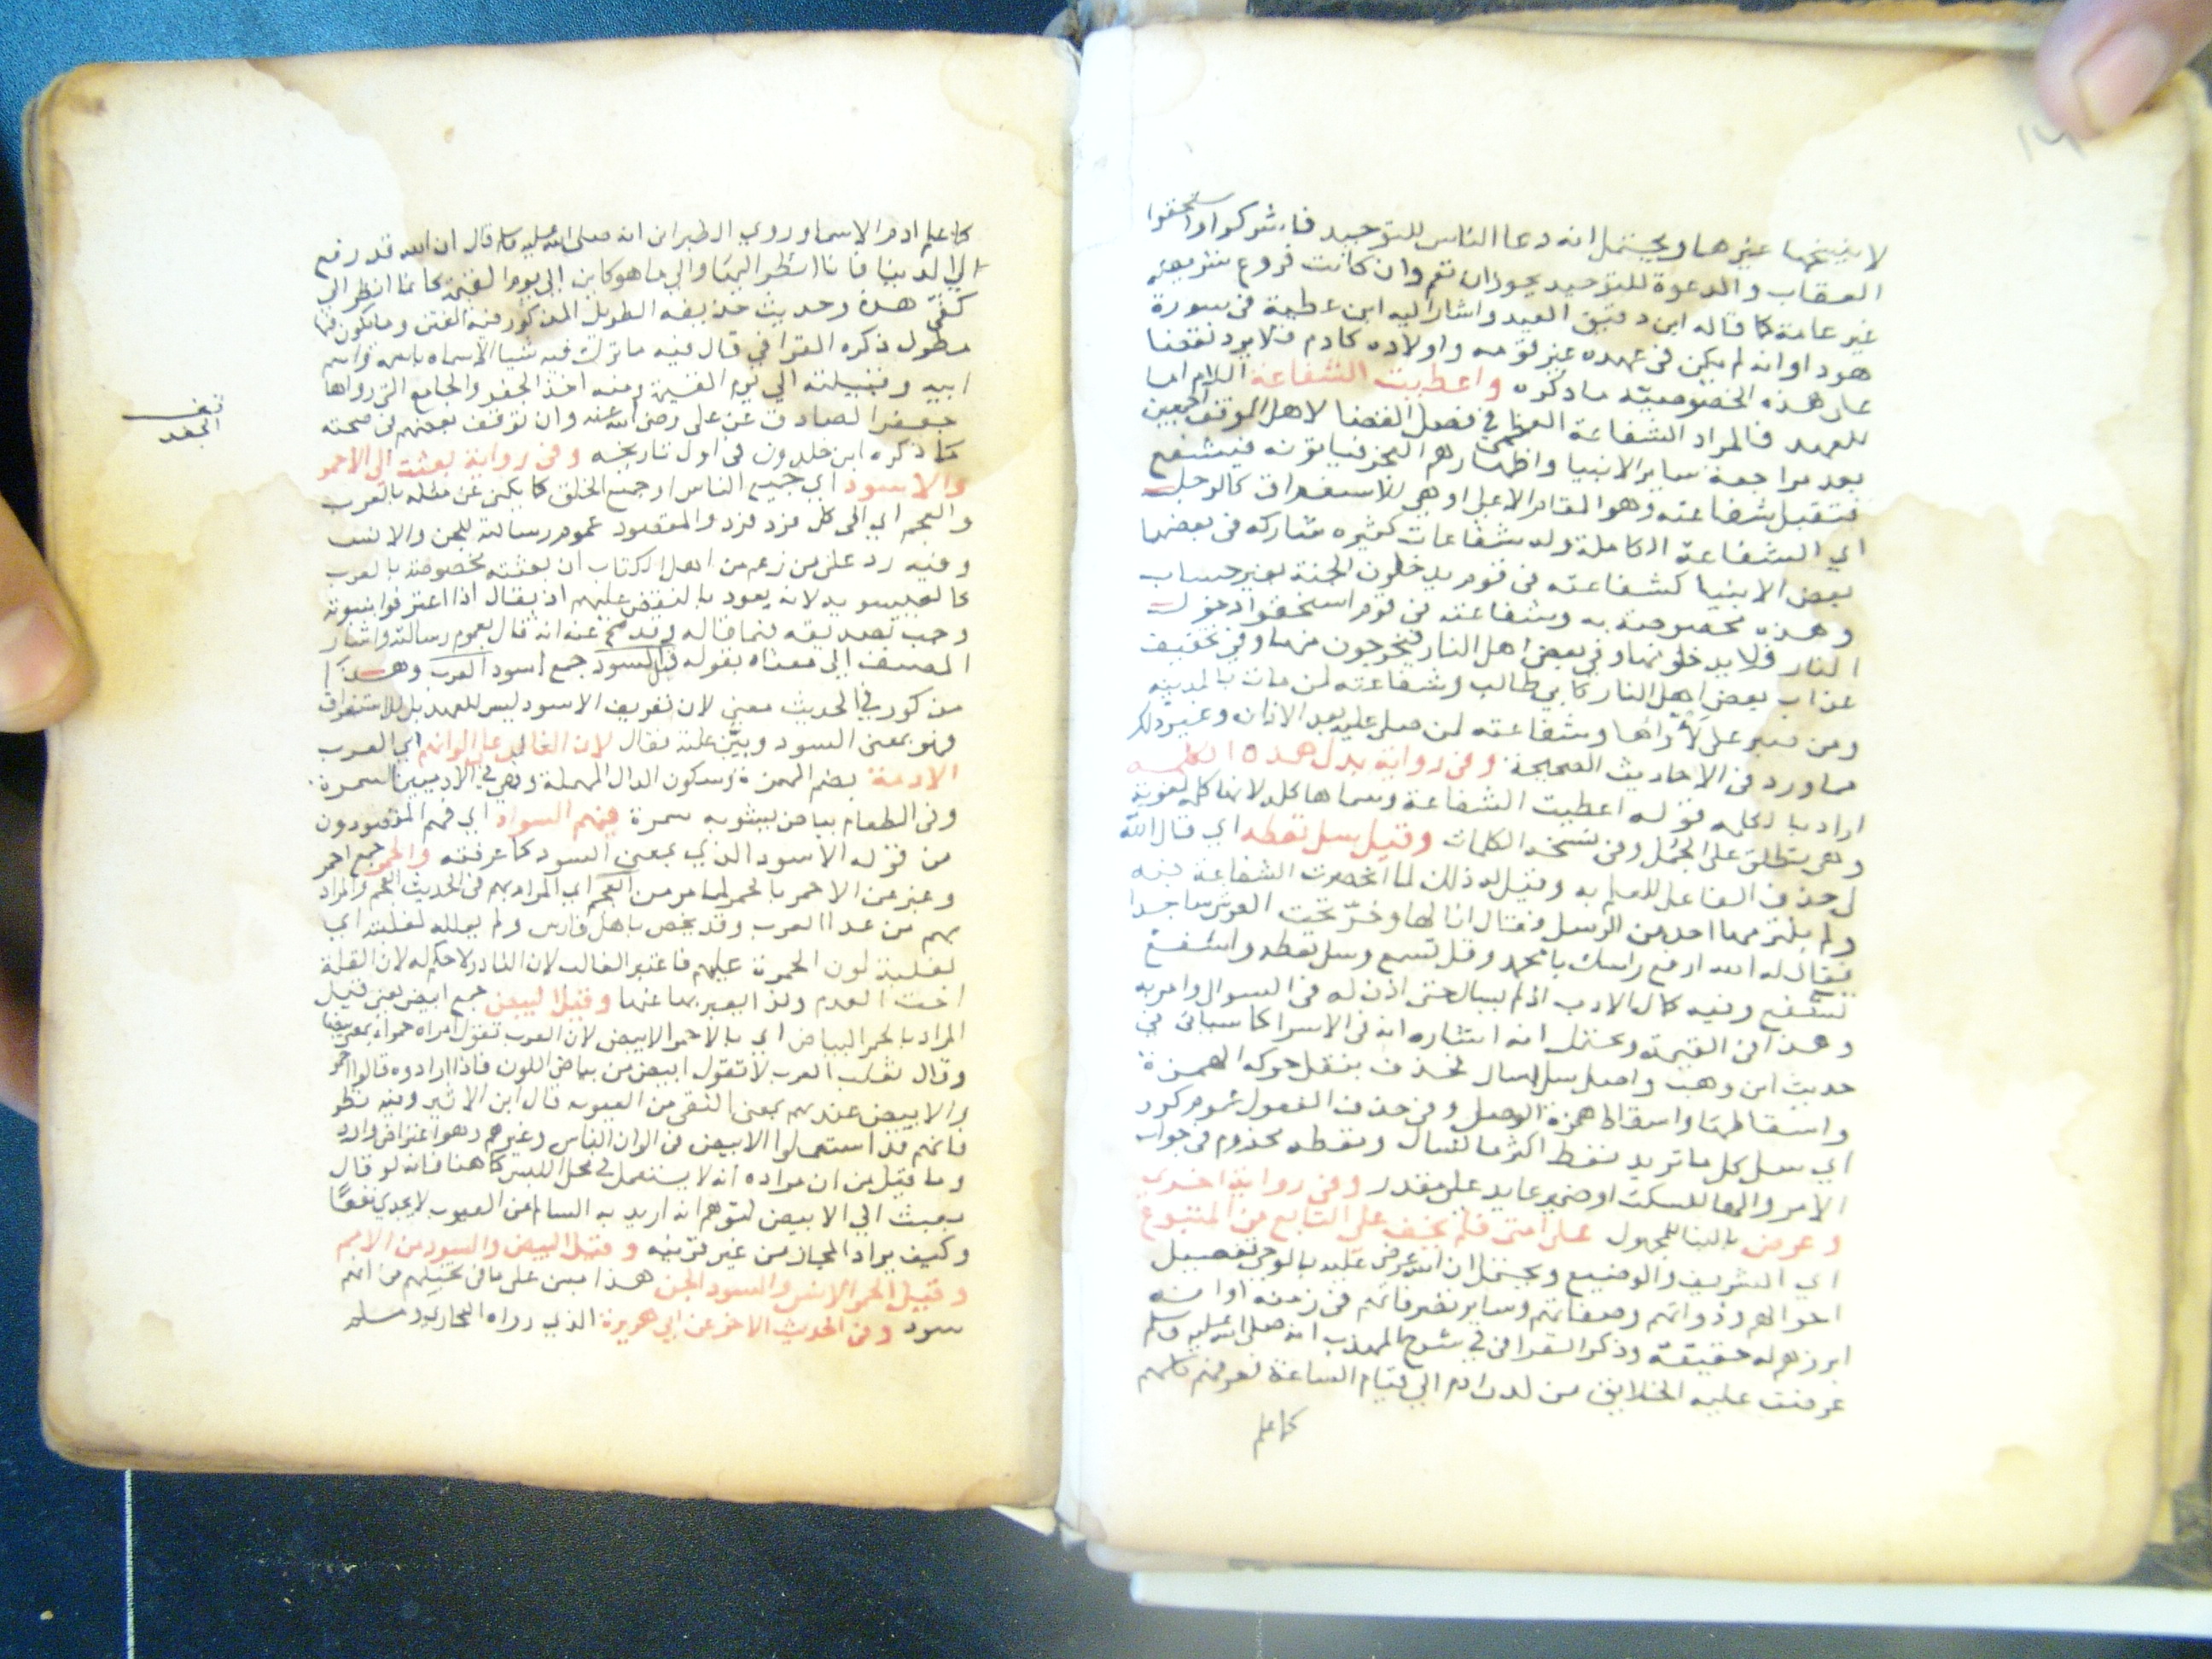 لا ينسخها غيرها ويحتمل انه دعا الناس للتوحيد فاشركوا واستحقوا
العقاب والدعوة للتوحيد يجوز ان تعم وان كانت فروع شريعته
غير عامة كما قاله ابن دقيق العيد واشار اليه ابن عطية في سورة
هود او انه لم يكن في عهده غير قومه واولاده كادم فلا يرد نقضا
على هذه الخصوصية ما ذكروه واعطيت الشفاعة اللام اما
للعهد فالمراد الشفاعة العظمى في فصل القضا لاهل الموقف اجمعين
بعد مراجعة ساير الانبيا واظهارهم العجز فياتونه فيشفع
فتقبل شفاعته وهو المقام الاعلى او هي للاستغراق كالرجل
اي الشفاعة الكاملة وله شفاعات كثيره شاركه في بعضها
بعض الانبيا كشفاعته في قوم يدخلون الجنة بغير حساب
وهذه مخصوصة به وشفاعته في قوم استحقوا دخول
النار فلا يدخلونها وفي بعض اهل النار فيخرجون منها وفي تخفيف
عذاب بعض اهل النار كابي طالب وشفاعته لمن مات بالمدينه
ومن صبر على لأوائها وشفاعته لمن صلى عليه بعد الاذان وغير ذلك
مما ورد في الاحاديث الصحيحة وفي رواية بدل هذه الكلمه
اراد بالكلمه قوله اعطيت الشفاعة وسماها كلمة لانها كلمة لغوية
وهي تطلق على الجمل وفي نسخة الكلمات وقيل سل تعطه اي قال الله
لي حذف الفاعل للعلم به وقيل له ذلك لما انحصرت الشفاعة فيه
ولم يلتزمها احد من الرسل فقال انا لها وخرّ تحت العرش ساجدا
فيقال له الله ارفع راسك يا محمد وقل تسمع وسل تعطه واشفع
تشفع وفيه كمال الادب اذ لم يسال حتى اذن له في السوال وامر به
وهذا في القيمة ويحتمل انه اشاره انه في الاسرا كما سياتي في
حديث ابن وهب واصل سل اسال فخذف بنقل حركة الهمزة
واسقاطها واسقاط همزة الوصل وفي حذف المفعول عموم مذكور
اي سل كل ما تريد تعط اكثر ما تسال وتعطه مجزوم في جواب
الامر والها للسكت او ضمير عايد على مقدر وفي رواية اخرى
وعرض بالبنا للمجهول على امتي فلم يخف علي التابع من المتبوع
اي الشريف والوضيع ويحتمل ان الله عرض عليه بالوحي تفصيل
احوالهم وذواتهم وصفاتهم وساير تصرفاتهم في زمنه او انه
ابرزهم له حقيقة وذكر القرافي في شرح المهذب انه صلى الله عليه وسلم
عرضت عليه الخلايق من لدن ادم الى قيام الساعة فعرفهم كلهم
كما علم
كما علم ادم الاسما وروى الطبراني انه صلى الله عليه وسلم قال ان الله قد رفع
الي الدنيا فانا انظر اليها والي ما هو كاين الي يوم القيمة كانما انظر الي
كفي هذه وحديث حذيفه الطويل المذكور فيه الفتن وما يكون فيها
مطول ذكره القرافي قال فيه ما ترك فيه شيا الاسماه باسمه واسم
ابيه وقبيلته الي يوم القيمة ومنه اخذ الجفر والجامع التي رواها
جعفر الصادق عن علي رضي الله عنه وان توقف بعضهم في صحته
كما ذكره ابن خلدون في اول تاريخه وفي رواية بعثت الي الاحمر
والاسود اي جميع الناس او جميع الخلق كما يكنى عن مثله بالعرب
والعجم اي الى كل فرد فرد والمقصود عموم رسالته للجن والانس
وفيه رد على من زعم من اهل الكتاب ان بعثته مخصوصة بالعرب
كالعيسويه لانه يعود بالنقض عليهم اذ يقال اذا اعترفوا بنبوته
وجب تصديقه فيما قاله وقد صح عنه انه قال بعموم رسالته واشار
المصنف الي معناه بقوله قيل السود جمع اسود العرب وهذا
مذكور في الحديث معني لان تعريف الاسود ليس للعهد بل للاستغراق
فهو بمعنى السود وبيّن علته فقال لان الغالب على الوانهم اي العرب
الادمة بضم الهمزة وسكون الدال المهملة وهي في الادميين السمرة
وفي الطعام بياض يشوبه سمرة فهم السود اي فهم المقصودون
من قوله الاسود الذي بمعنى السود كما عرفته والحمر جمع احمر
وعبر عن الاحمر بالحمر لما مر من العجم اي المراد بهم في الحديث العجم والمراد
بهم من عدا العرب وقد يخص باهل فارس ولم يعلله لغلبته اي
لغلبة لون الحمرة عليهم فاعتبر الغالب لان النادر لا حكم له لان القلة
اخت العدم ولذا يعبر بها عنها وقيل البيض جمع ابيض يعني قيل
المراد بالحمر البياض اي بالاحمر الابيض لان العرب تقول امراه حمراء بمعنى بيضا
وقال ثعلب العرب لا تقول ابيض من بياض اللون فاذا ارادوه قالوا احمر
والابيض عندهم بمعنى النقي من العيوب قال ابن الاثير وفيه نظر
فانهم قد استعملوا الابيض في الوان الناس وغيرهم وهو اعتراض وارد
وما قيل من ان مراده انه لا يستعمل في محل اللبس كما هنا فانه لو قال
بعثت الي الابيض لتوهم انه اريد به السالم من العيوب لا يجدي نفعًا
وكيف يراد المجاز من غير قرينه وقيل البيض والسود من الامم
وقيل الحمر الانس والسود الجن هذا مبني على ما في تخيلهم من انهم
سود وفي الحديث الاخر عن ابي هريرة الذي رواه البخاري ومسلم
الجفر